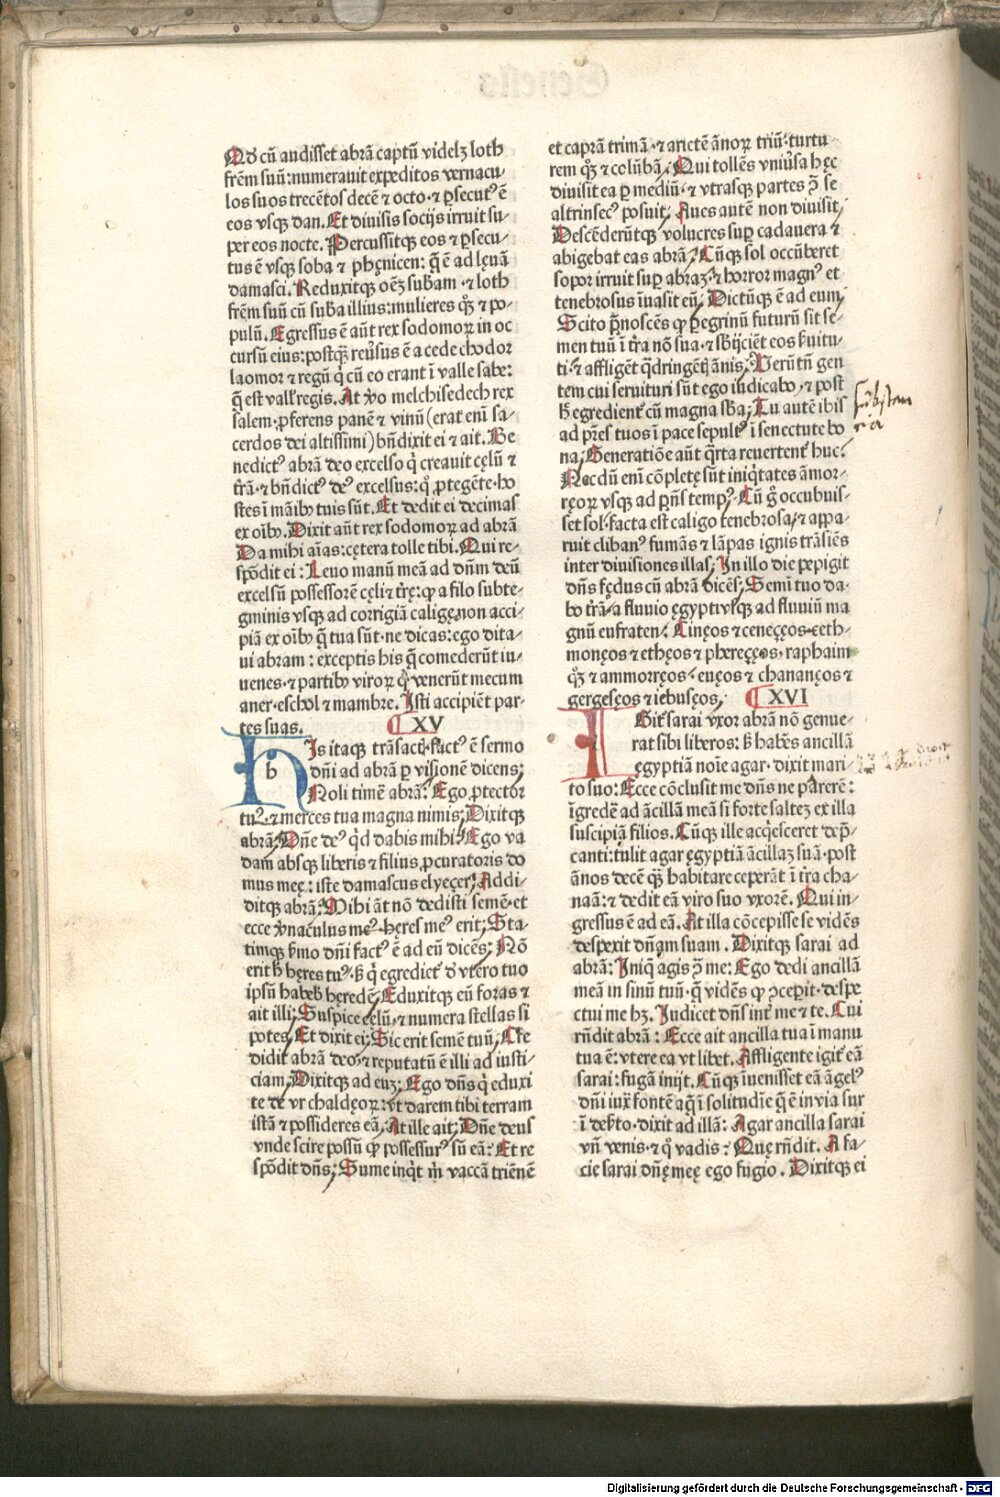 Qđ cū audisset abrā captū videlȝ loth
frēm suū: numerauit expeditos vernacu
los suos trecētos decē ⁊ octo· ⁊ ꝑsecutꝰ ē
eos vsqꝫ dan. Et diuisis socijs irruit su-
per eos nocte. Percussitqꝫ eos ⁊ ꝑsecu-
tus ē vsqꝫ soba ⁊ phęnicen: q̄ ē ad lęuā
damasci. Reduxitqꝫ oēȝ subam· ⁊ loth
frēm suū cū suba illius: mulieres qꝫ ⁊ po-
pulū. Egressus ē aūt rex sodomoꝝ in oc
cursū eius: postqꝫ reūsus ē a cede chodor
laomor ⁊ regū q̇ cū eo erant ī valle sabe:
q̄ est vallꝭ regis. At ꝟo melchisedech rex
salem· ꝓferens panē ⁊ vinū (erat enī sa-
cerdos dei altissimi) bn̄dixit ei ⁊ ait. Be
nedictꝰ abrā deo excelso q̇ creauit cęlū ⁊
trā· ⁊ bn̄dictꝰ deꝰ excelsus: q̇ ꝓtegēte· ho
stes ī māibꝰ tuis sūt. Et dedit ei decimas
ex oībꝰ. Dixit aūt rex sodomoꝝ ad abrā
Da mihi aīas: cętera tolle tibi. Qui re-
spōdit ei: Leuo manū meā ad dn̄m deū
excelsū possessorē cęli ⁊ trę: ꝙ a filo subte-
gminis vsqꝫ ad corrigiā calige· non acci-
piā ex oībꝰ q̄ tua sūt· ne dicas: ego dita-
ui abram: exceptis his q̄ comederūt iu-
uenes· ⁊ partibꝰ viroꝝ q̇ venerūt mecum
aner· eschol ⁊ mambre. Isti accipiēt par-
tes suas. ¶ XV
His itaqꝫ trāsactꝭ· factꝰ ē sermo
h dn̄i ad abrā ꝑ visionē dicens:
Noli timē abrā: Ego ꝓtector
tuꝰ· ⁊ merces tua magna nimis. Dixitqꝫ
abrā: Dn̄e deꝰ q̇d dabis mihi? Ego va
dam absqꝫ liberis ⁊ filius ꝓcuratoris do
mus meę: iste damascus elyeçer. Addi-
ditqꝫ abrā: Mihi āt nō dedisti semē· et
ecce ꝟnaculus meꝰ· hęres meꝰ erit. Sta-
timqꝫ ẜmo dn̄i factꝰ ē ad eū dicēs: Nō
erit ħ hęres tuꝰ· ẜ q̇ egredietꝰ đ vtero tuo
ipsū habebꝭ hęredē. Eduxitqꝫ eū foras ⁊
ait illi: Suspice cęlū· ⁊ numera stellas si
potes. Et dixit ei: Sic erit semē tuū. Cre
didit abrā deo· ⁊ reputatū ē illi ad iusti-
ciam. Dixitqꝫ ad euȝ: Ego dn̄s q̇ eduxi
te de vr chaldęoꝝ: vt darem tibi terram
istā ⁊ possideres eā. At ille ait: Dn̄e deus
vnde scire possū ꝙ possessurꝰ sū eā: Et re
spōdit dn̄s: Sume inq̇t m̄ vaccā triēnē
et caprā trimā· ⁊ arietē ānoꝝ triū· turtu-
rem qꝫ ⁊ colūbā. Qui tollēs vniūsa hęc
diuisit ea ꝑ mediū· ⁊ vtrasqꝫ partes ꝯ̄ se
altrinsecꝰ posuit. Aues autē non diuisit.
Descēderūtqꝫ volucres suꝑ cadauera ⁊
abigebat eas abrā. Cūqꝫ sol occūberet
sopor irruit suꝑ abraȝ· ⁊ horror magnꝰ et
tenebrosus īuasit eū. Dictūqꝫ ē ad eum
Scito p̄noscēs ꝙ ꝑegrinū futurū sit se-
men tuū ī tra nō sua· ⁊ sbijciēt eos ẜuitu-
ti· ⁊ affligēt q̄dringētꝭ ānis. Verūtn̄ gen
tem cui seruituri sūt ego iudicabo· ⁊ post
ħ egredientꝰ cū magna sba. Tu autē ibis
ad pr̄es tuos ī pace sepultꝰ ī senectute bo
na. Generatiōe aūt q̄rta reuertentꝰ huc.
Necdū enī cōpletę sūt iniq̇tates āmor-
ręoꝝ vsqꝫ ad pn̄s tempꝰ. Cū g̊ occubuis-
set sol· facta est caligo tenebrosa· ⁊ appa-
ruit clibanꝰ fumās ⁊ lāpas ignis trāsiēs
inter diuisiones illas. In illo die pepigit
dn̄s fędus cū abrā dicēs: Semī tuo da-
bo trā· a fluuio ęgypti vsqꝫ ad fluuiū ma
gnū eufraten: Cinęos ⁊ ceneçęos· ceth-
monęos ⁊ ethęos ⁊ phereçęos· raphaim
qꝫ ⁊ ammorręos· euęos ⁊ chananęos ⁊
gergesęos ⁊ iebusęos. ¶ XVI
Igit̄ sarai vxor abrā nō genue-
rat sibi liberos: ẜ habēs ancillā
ęgyptiā noīe agar· dixit mari-
to suo: Ecce cōclusit me dn̄s ne parerē:
īgredē ad ācillā meā si forte salteȝ ex illa
suscipiā filios. Cūqꝫ ille acq̇esceret dep̄-
canti: tulit agar ęgyptiā ācillaȝ suā· post
ānos decē q̄ȝ habitare ceperāt ī tra cha-
naā: ⁊ dedit eā viro suo vxorē. Qui in-
gressus ē ad eā. At illa cōcepisse se vidēs
despexit dn̄am suam. Dixitqꝫ sarai ad
abrā: Iniq̄ agis ꝯ̄ me: Ego dedi ancillā
meā in sinū tuū· q̄ vidēs ꝙ ꝯceperit· despe
ctui me hȝ. Iudicet dn̄s int̄ me ⁊ te. Cui
rn̄dit abrā: Ecce ait ancilla tua ī manu
tua ē: vtere ea vt libet. Affligente igit̄ eā
sarai: fugā inijt. Cūqꝫ īuenisset eā āgelꝰ
dn̄i iux̄ fontē aq̄ ī solitudīe q̄ ē in via sur
ī deẜto· dixit ad illā: Agar ancilla sarai
vn̄ venis· ⁊ q̊ vadis: Quę rn̄dit. A fa-
cie sarai dn̄ę meę ego fugio. Dixitqꝫ ei
Digitalisierung gefördert durch die Deutsche Forschungsgemeinschaft - DFG